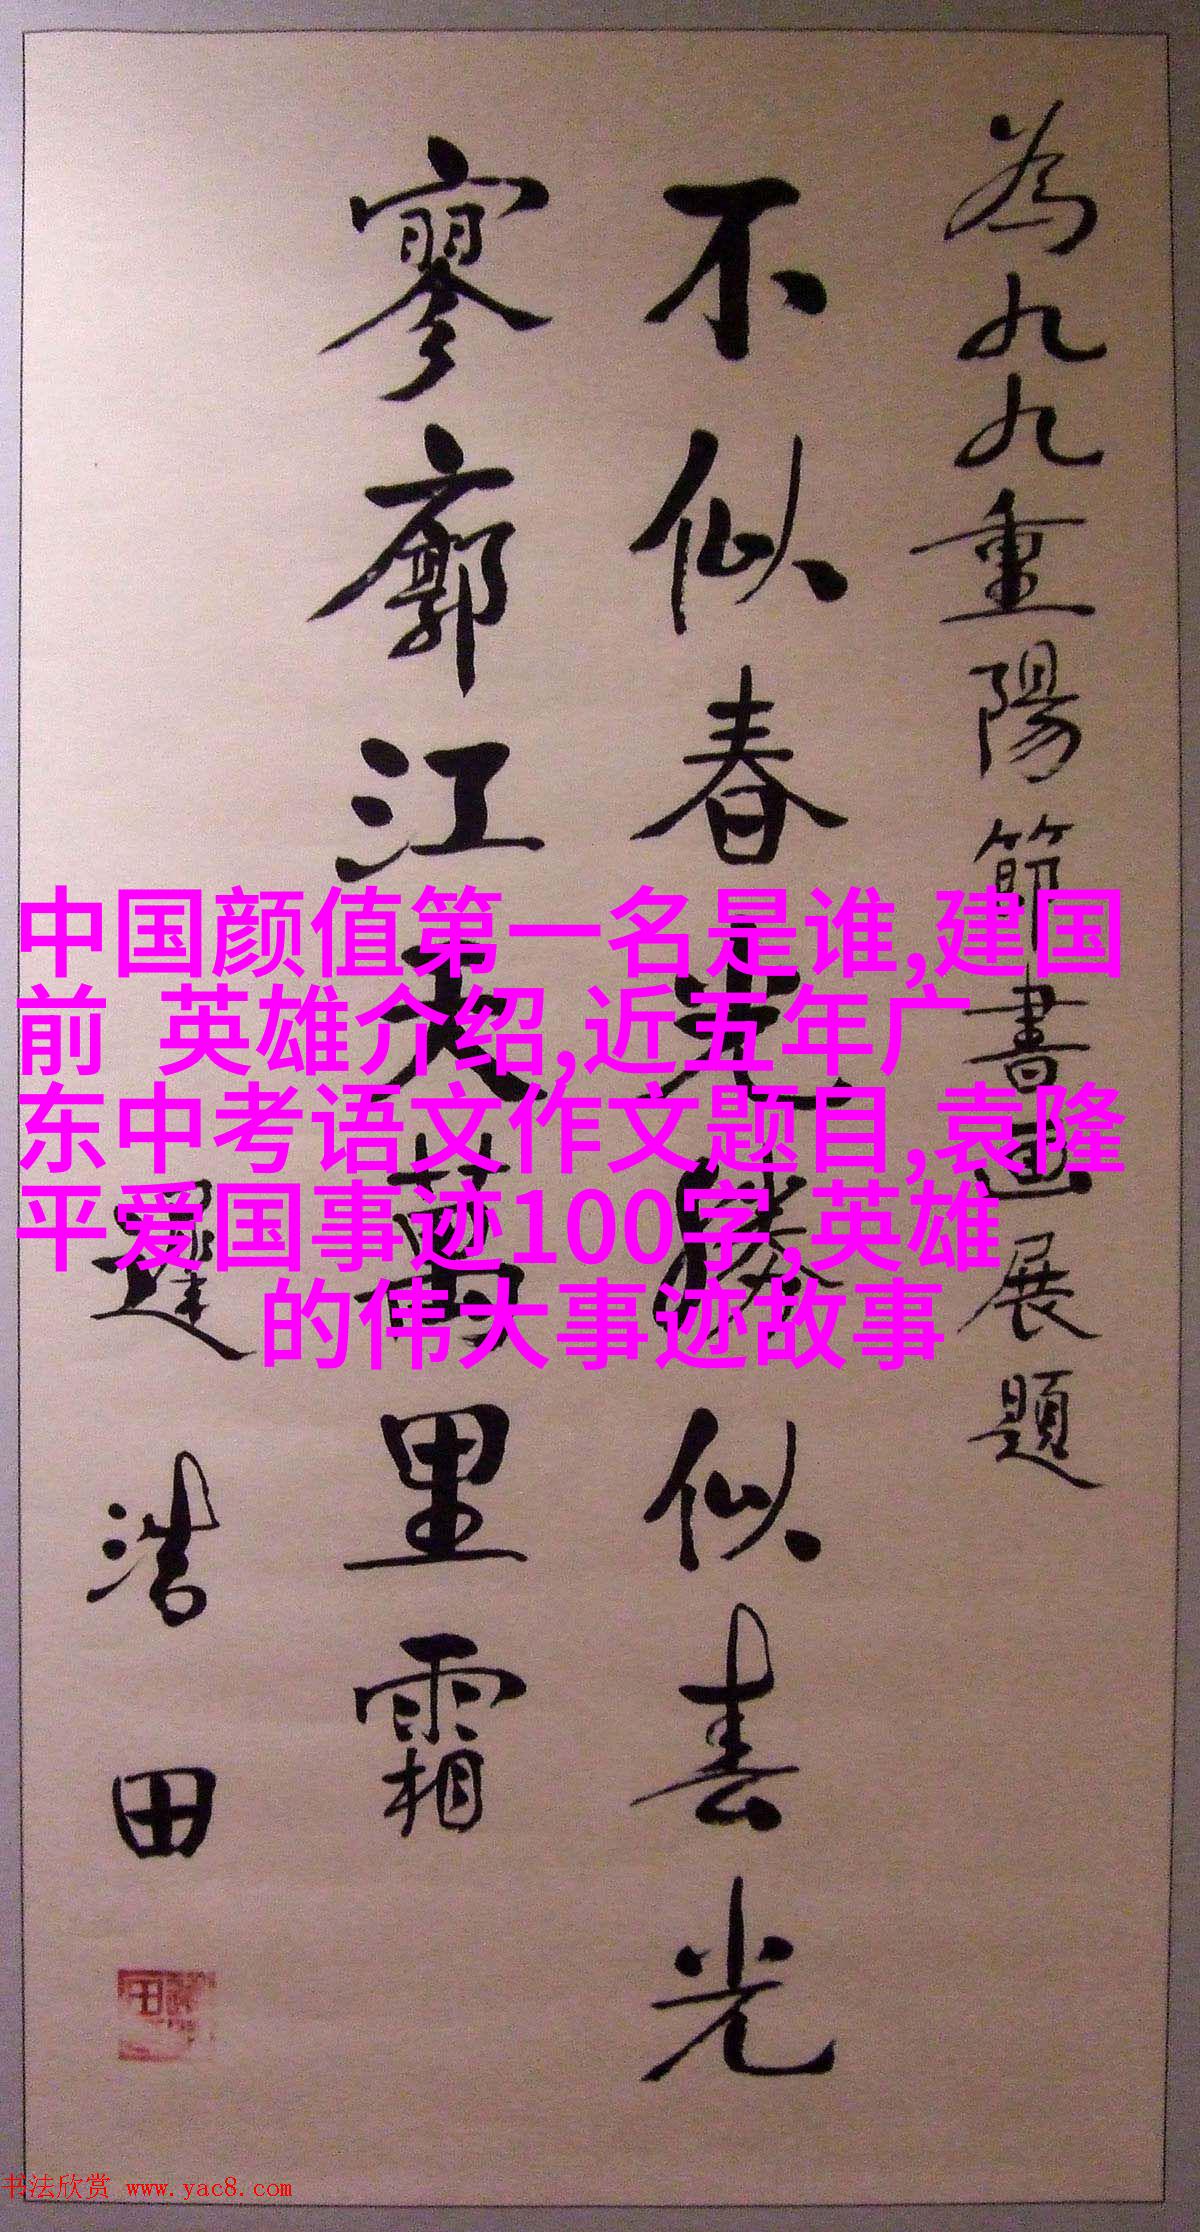 為九九重陽節書画展題
不似春光勝似春光
寥廓江天萬里霜
遲浩田
中国颜值第一名是谁,建国
前 英雄介绍,近五年广
东中考语文作文题目,袁隆
平爱国事迹100字,英雄
的伟大事迹故事
书法欣赏 www.yac8.com